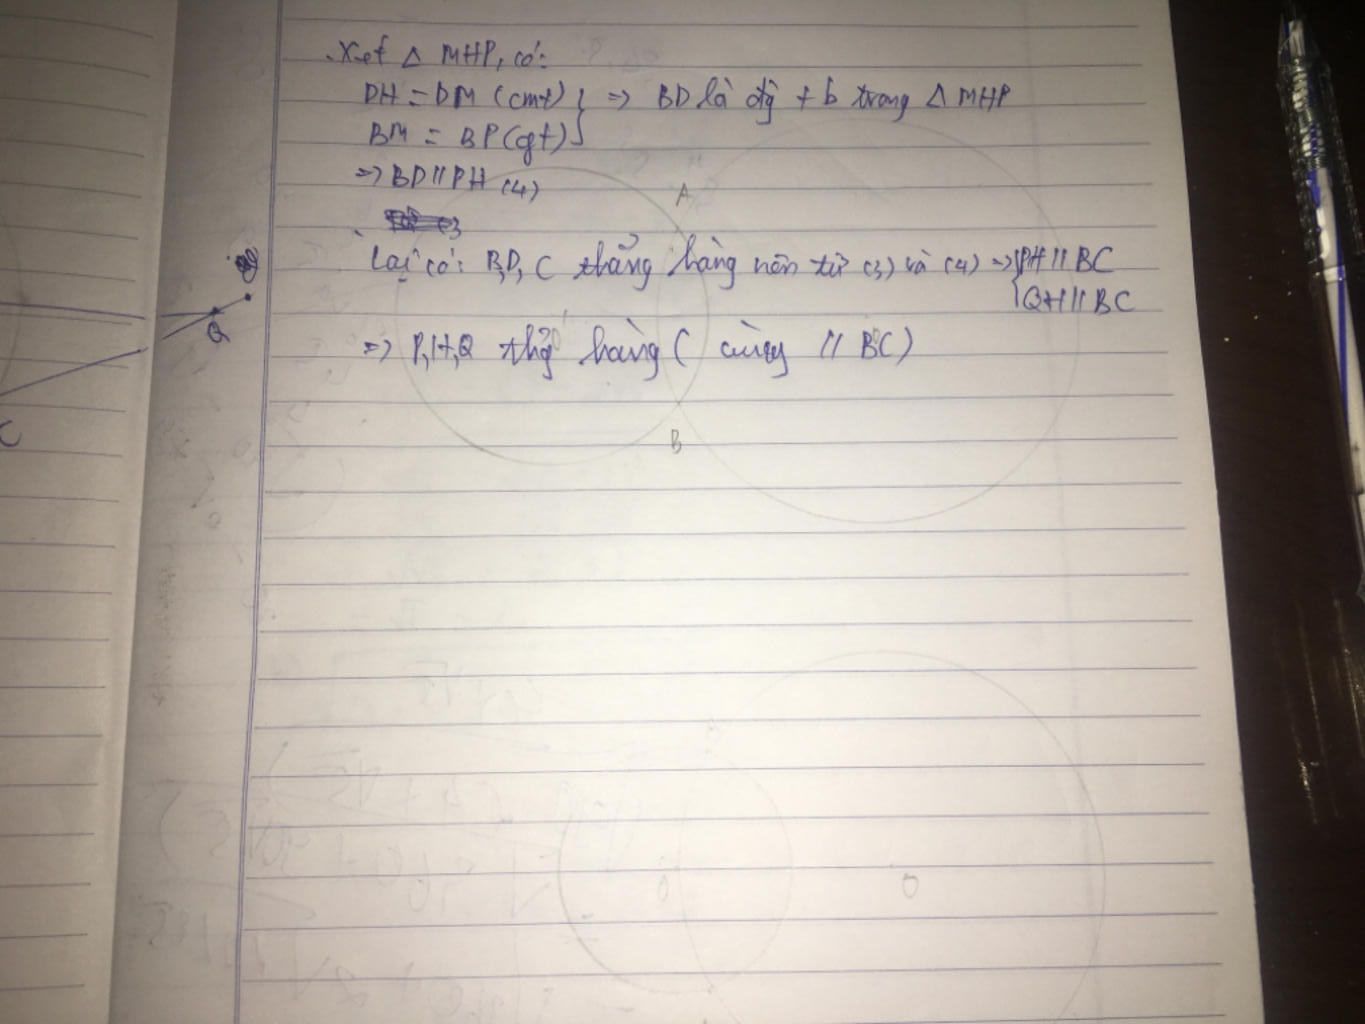 . Xét △ MHP, có:
DH = DM (cmt)
BM = BP (gt)
} => BD là đg t b trong △ MHP
=> BD // PH (4)
A
Lại có: B, D, C thẳng hàng nên từ (3) và (4) => { PH // BC
QH // BC
Q
=> P, H, Q thg hàng ( cùng // BC)
C
B
O